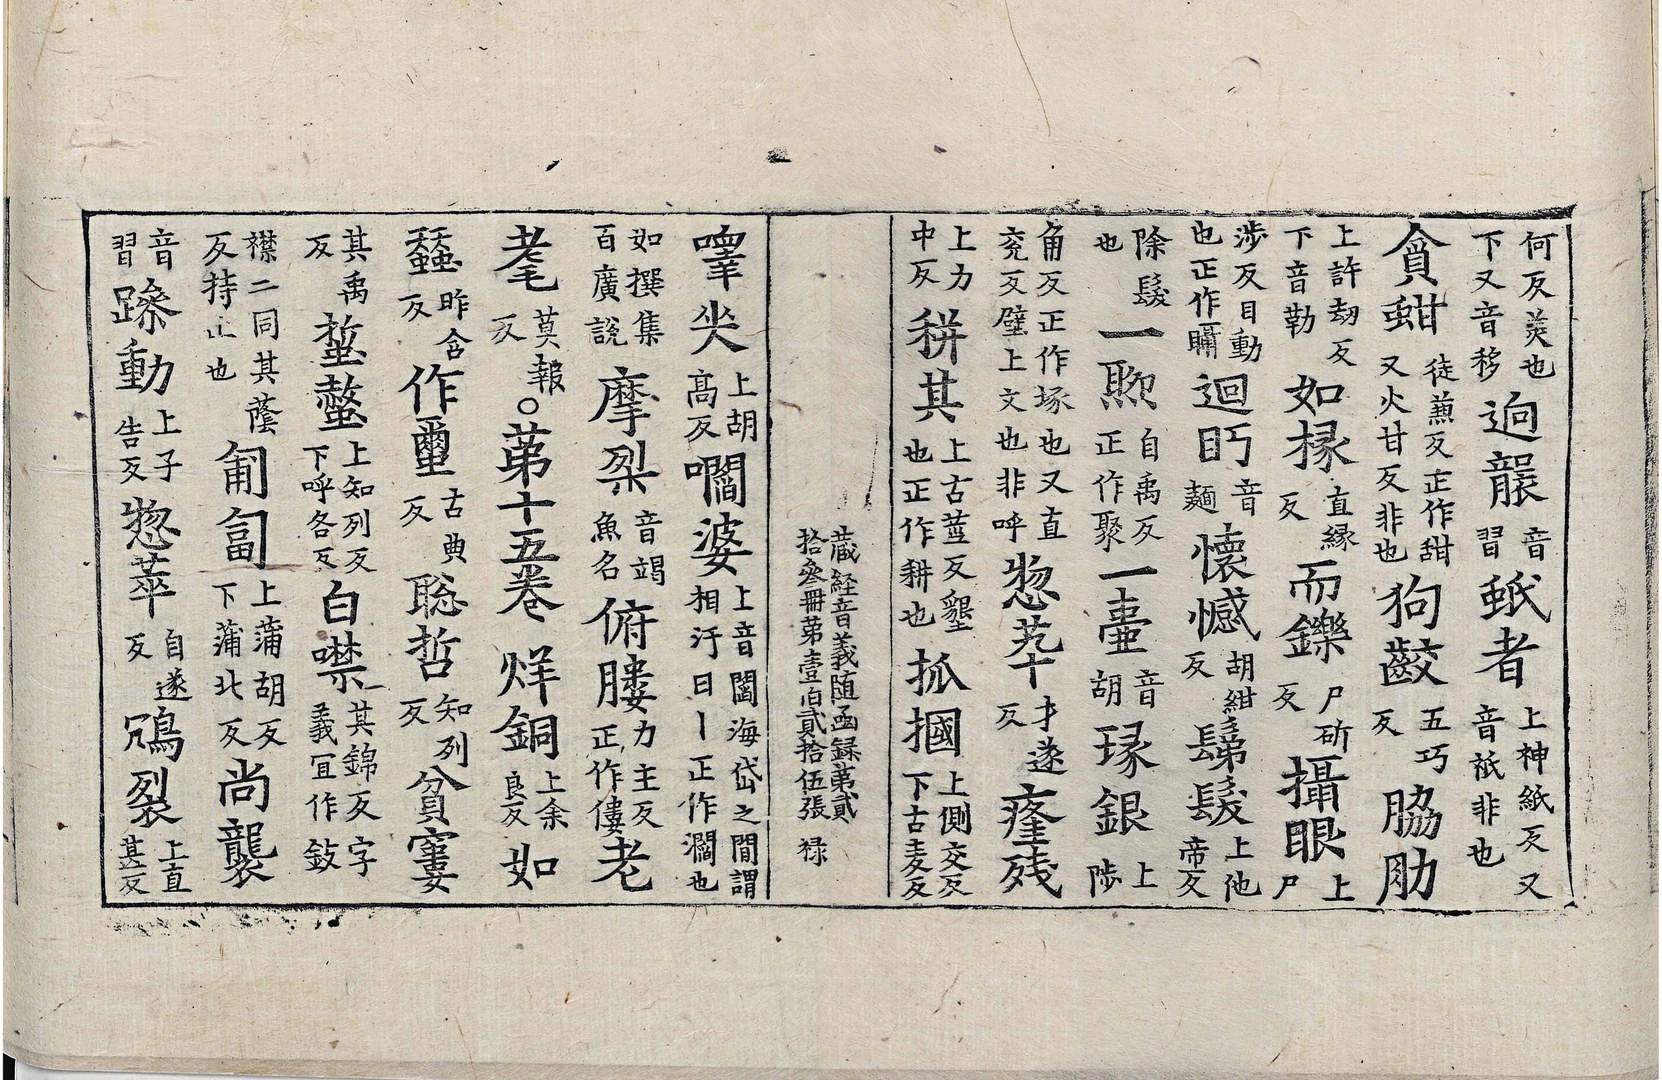 何反羙也下又音移逈䶮音習蚔者上神紙反又音祇非也
貪蚶徒蒹反正作甜又火甘反非也狗齩五巧反脇肋
上許刧反下音勒如椽直縁反而鑠尸斫反攝眼上尸
渉反目動也正作𥊝迴眄音麺懷憾胡紺反髢髲上他帝反
除髲也一㷅自禹反正作聚一壷音胡瑑銀上陟
角反正作琢也又直兖反璧上文也非呼惣芿才遂反瘞殘
上力中反秐其上古莖反墾也正作耕也抓摑上側交反下古麦反
藏経音義随函録第貳
拾叅冊第壹伯貳拾伍張 禄
嘷㘸上胡高反㘎婆上音閻海岱之閒謂相汙曰丨正作灛也
如撰集百廣說摩㓝音竭魚名俯膢力主反正作僂老
耄莫報反○第十五卷 烊銅上余良反如
蠶昨含反作璽古典反聡哲知列反貧窶
其禹反蜇螫上知列反下呼各反白噤其錦反字義冝作㪁
襟二同其䕃反持止也匍匐上蒲胡反下蒲北反尚襲
音習躁動上子告反惣萃自遂反鴆裂上直甚反